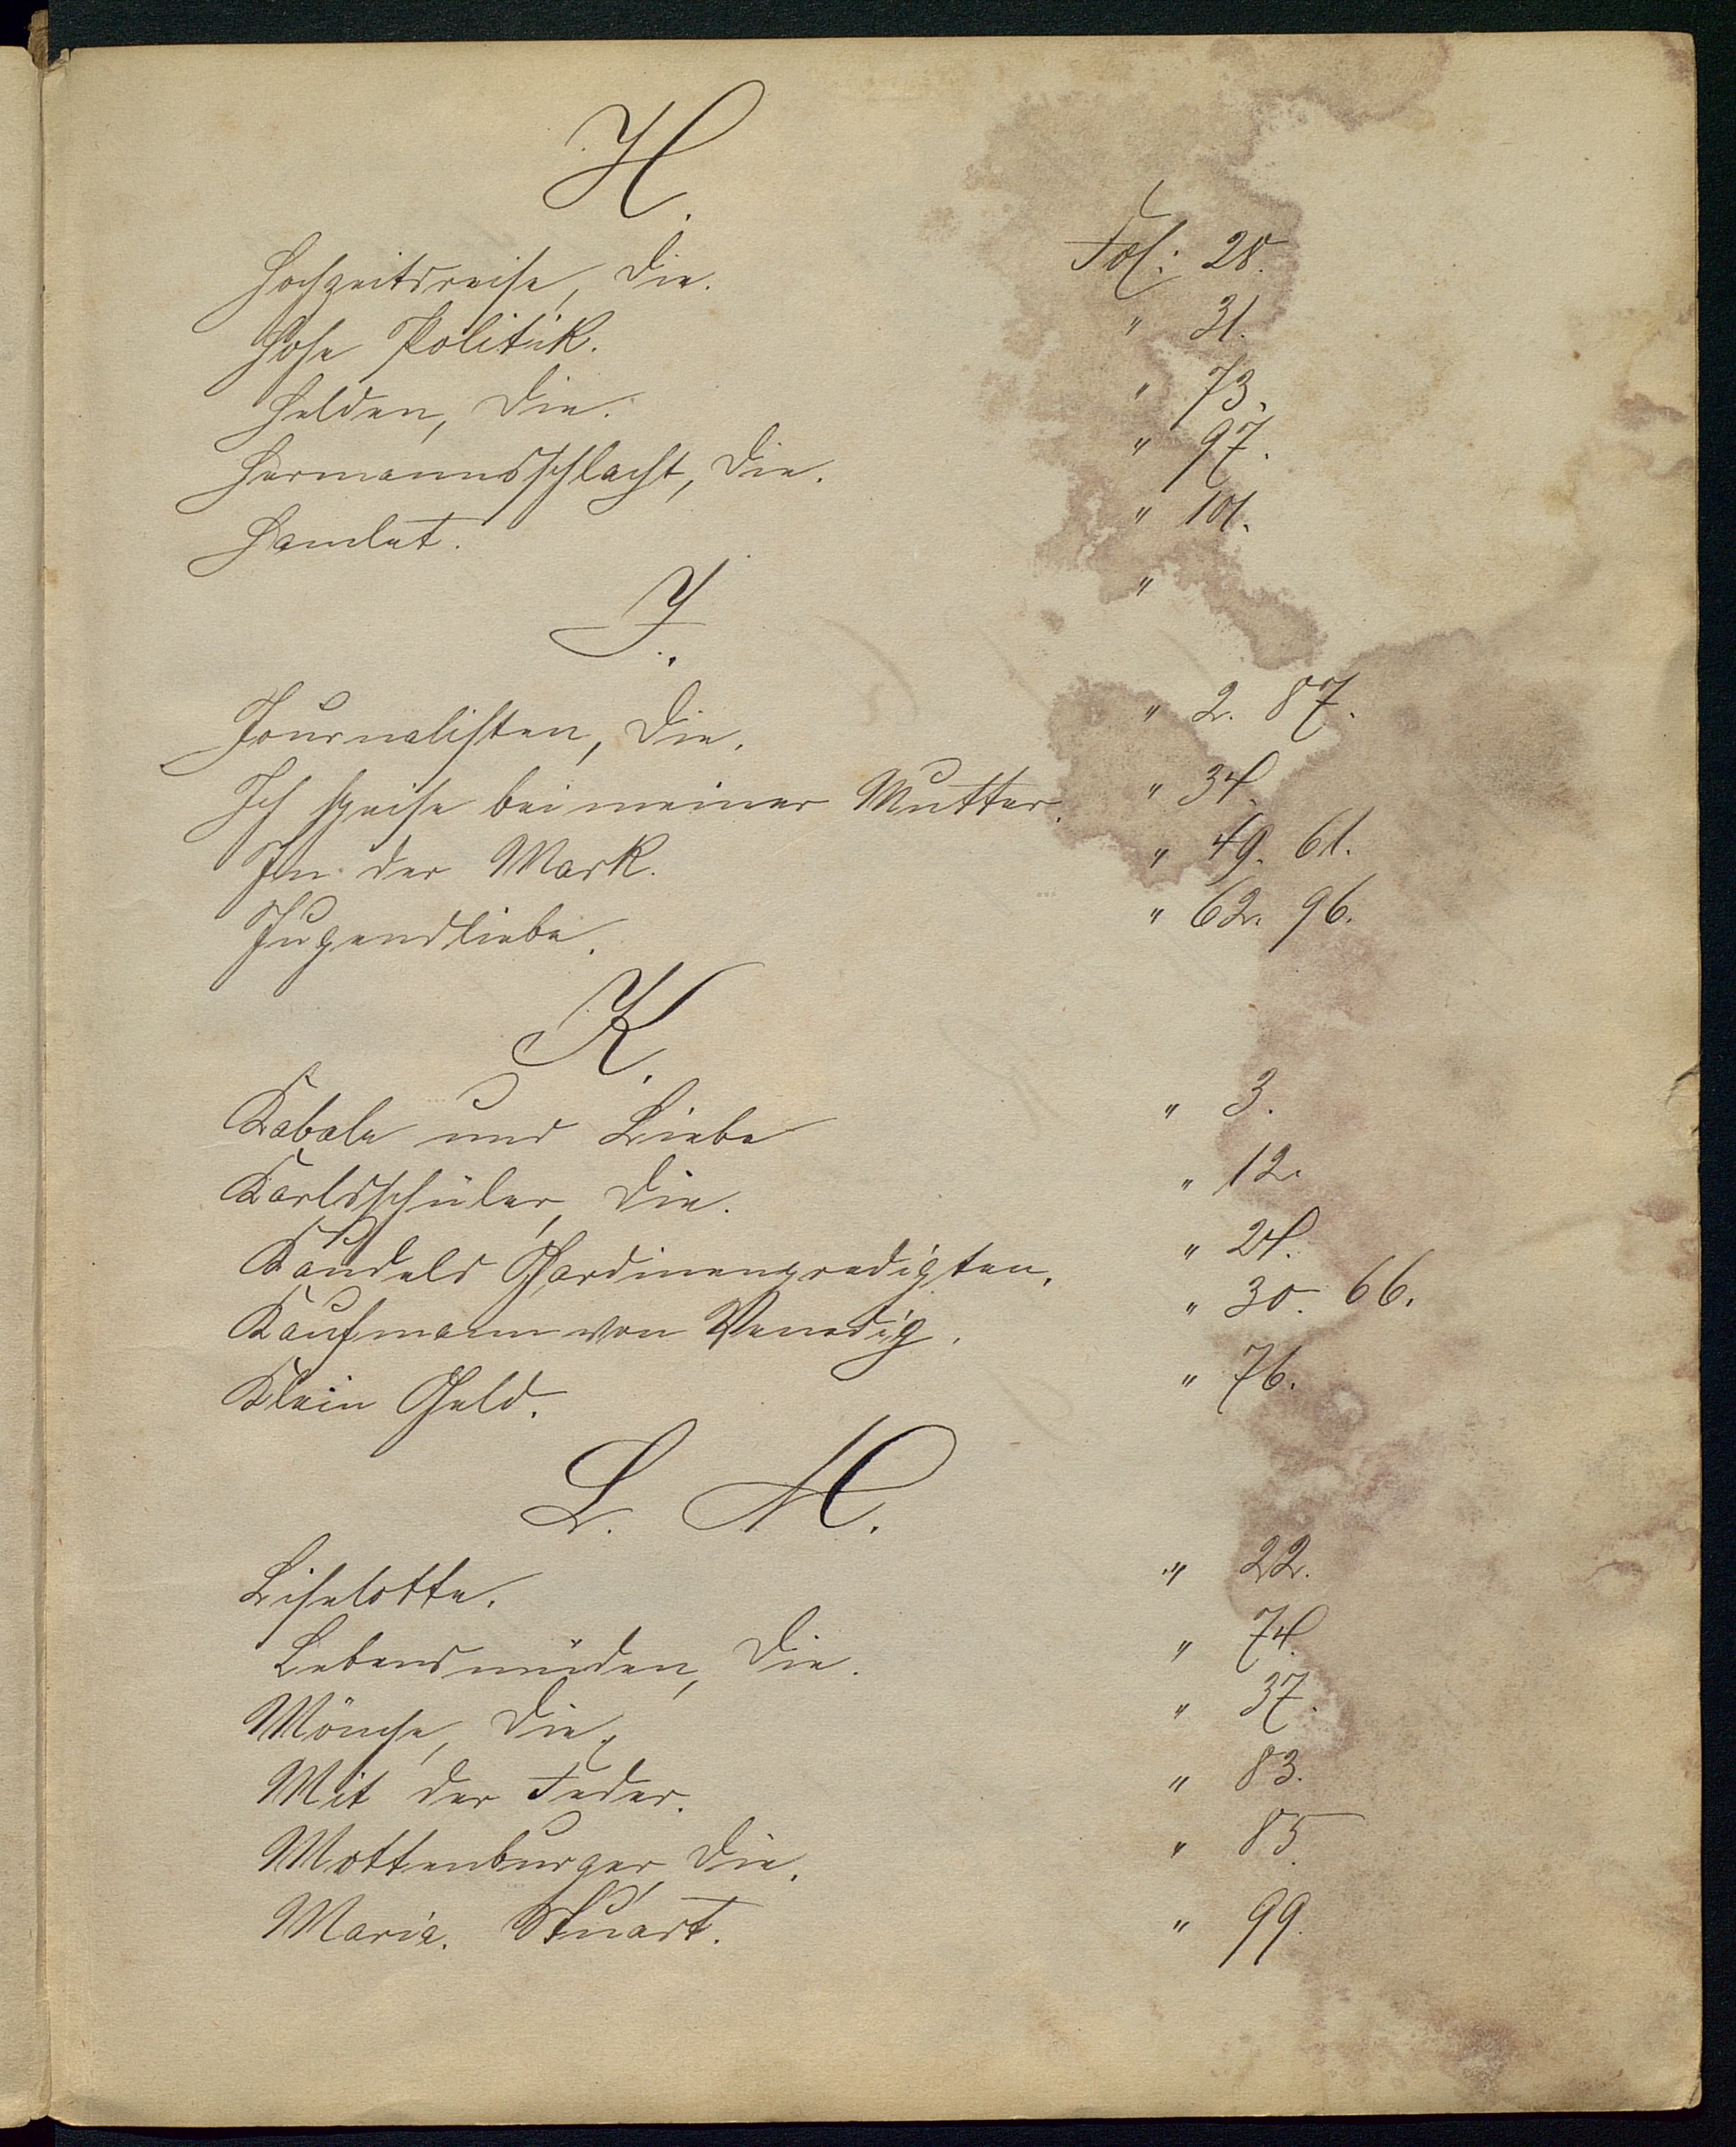 H.
Hochzeitsreise, die. Fol: 28.
Hohe Politik. " 31.
Helden, die. " 73.
Hermannsschlacht, die. " 97.
Hamlet. " 101.
"
J.
Journalisten, die. " 2. 87.
Ich speise bei meiner Mutter. " 34.
In der Mark. " 49. 61.
Jugendliebe. " 62. 96.
K.
Kabale und Liebe " 3.
Karlsschüler, die. " 12.
Kaudels Gardinenpredigten. " 24.
Kaufmann von Venedig. " 30. 66.
Klein Geld. " 76.
L. M.
Liselotte. " 22.
Lebensmüden, die. " 74.
Mönche, die. " 37.
Mit der Feder. " 83.
Mottenburger, die. " 85.
Maria Stuart. " 99.